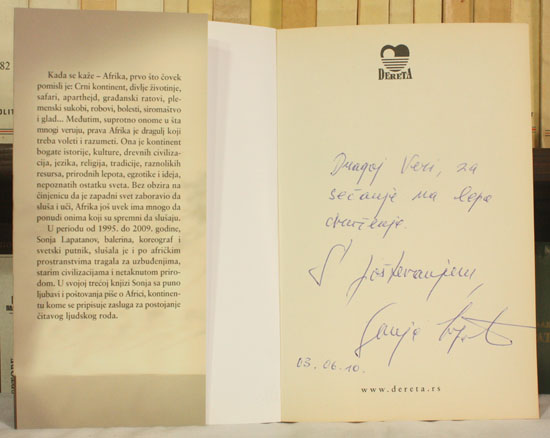 Kada se kaže – Afrika, prvo što čovek
pomisli je: Crni kontinent, divlje životinje,
safari, aparthejd, građanski ratovi, ple-
menski sukobi, robovi, bolesti, siromaštvo
i glad... Međutim, suprotno onome u šta
mnogi veruju, prava Afrika je dragulj koji
treba voleti i razumeti. Ona je kontinent
bogate istorije, kulture, drevnih civiliza-
cija, jezika, religija, tradicije, raznolikih
resursa, prirodnih lepota, egzotike i ideja,
nepoznatih ostatku sveta. Bez obzira na
činjenicu da je zapadni svet zaboravio da
sluša i uči, Afrika još uvek ima mnogo da
ponudi onima koji su spremni da slušaju.
U periodu od 1995. do 2009. godine,
Sonja Lapatanov, balerina, koreograf i
svetski putnik, slušala je i po afričkim
prostranstvima tragala za uzbuđenjima,
starim civilizacijama i netaknutom priro-
dom. U svojoj trećoj knjizi Sonja sa puno
ljubavi i poštovanja piše o Africi, kontinen-
tu kome se pripisuje zasluga za postojanje
čitavog ljudskog roda.
DERETA
Dragoj Veri, za
sećanje na lepo
druženje.
S' poštovanjem,
Sonja
03.06.10.
www.dereta.rs
82